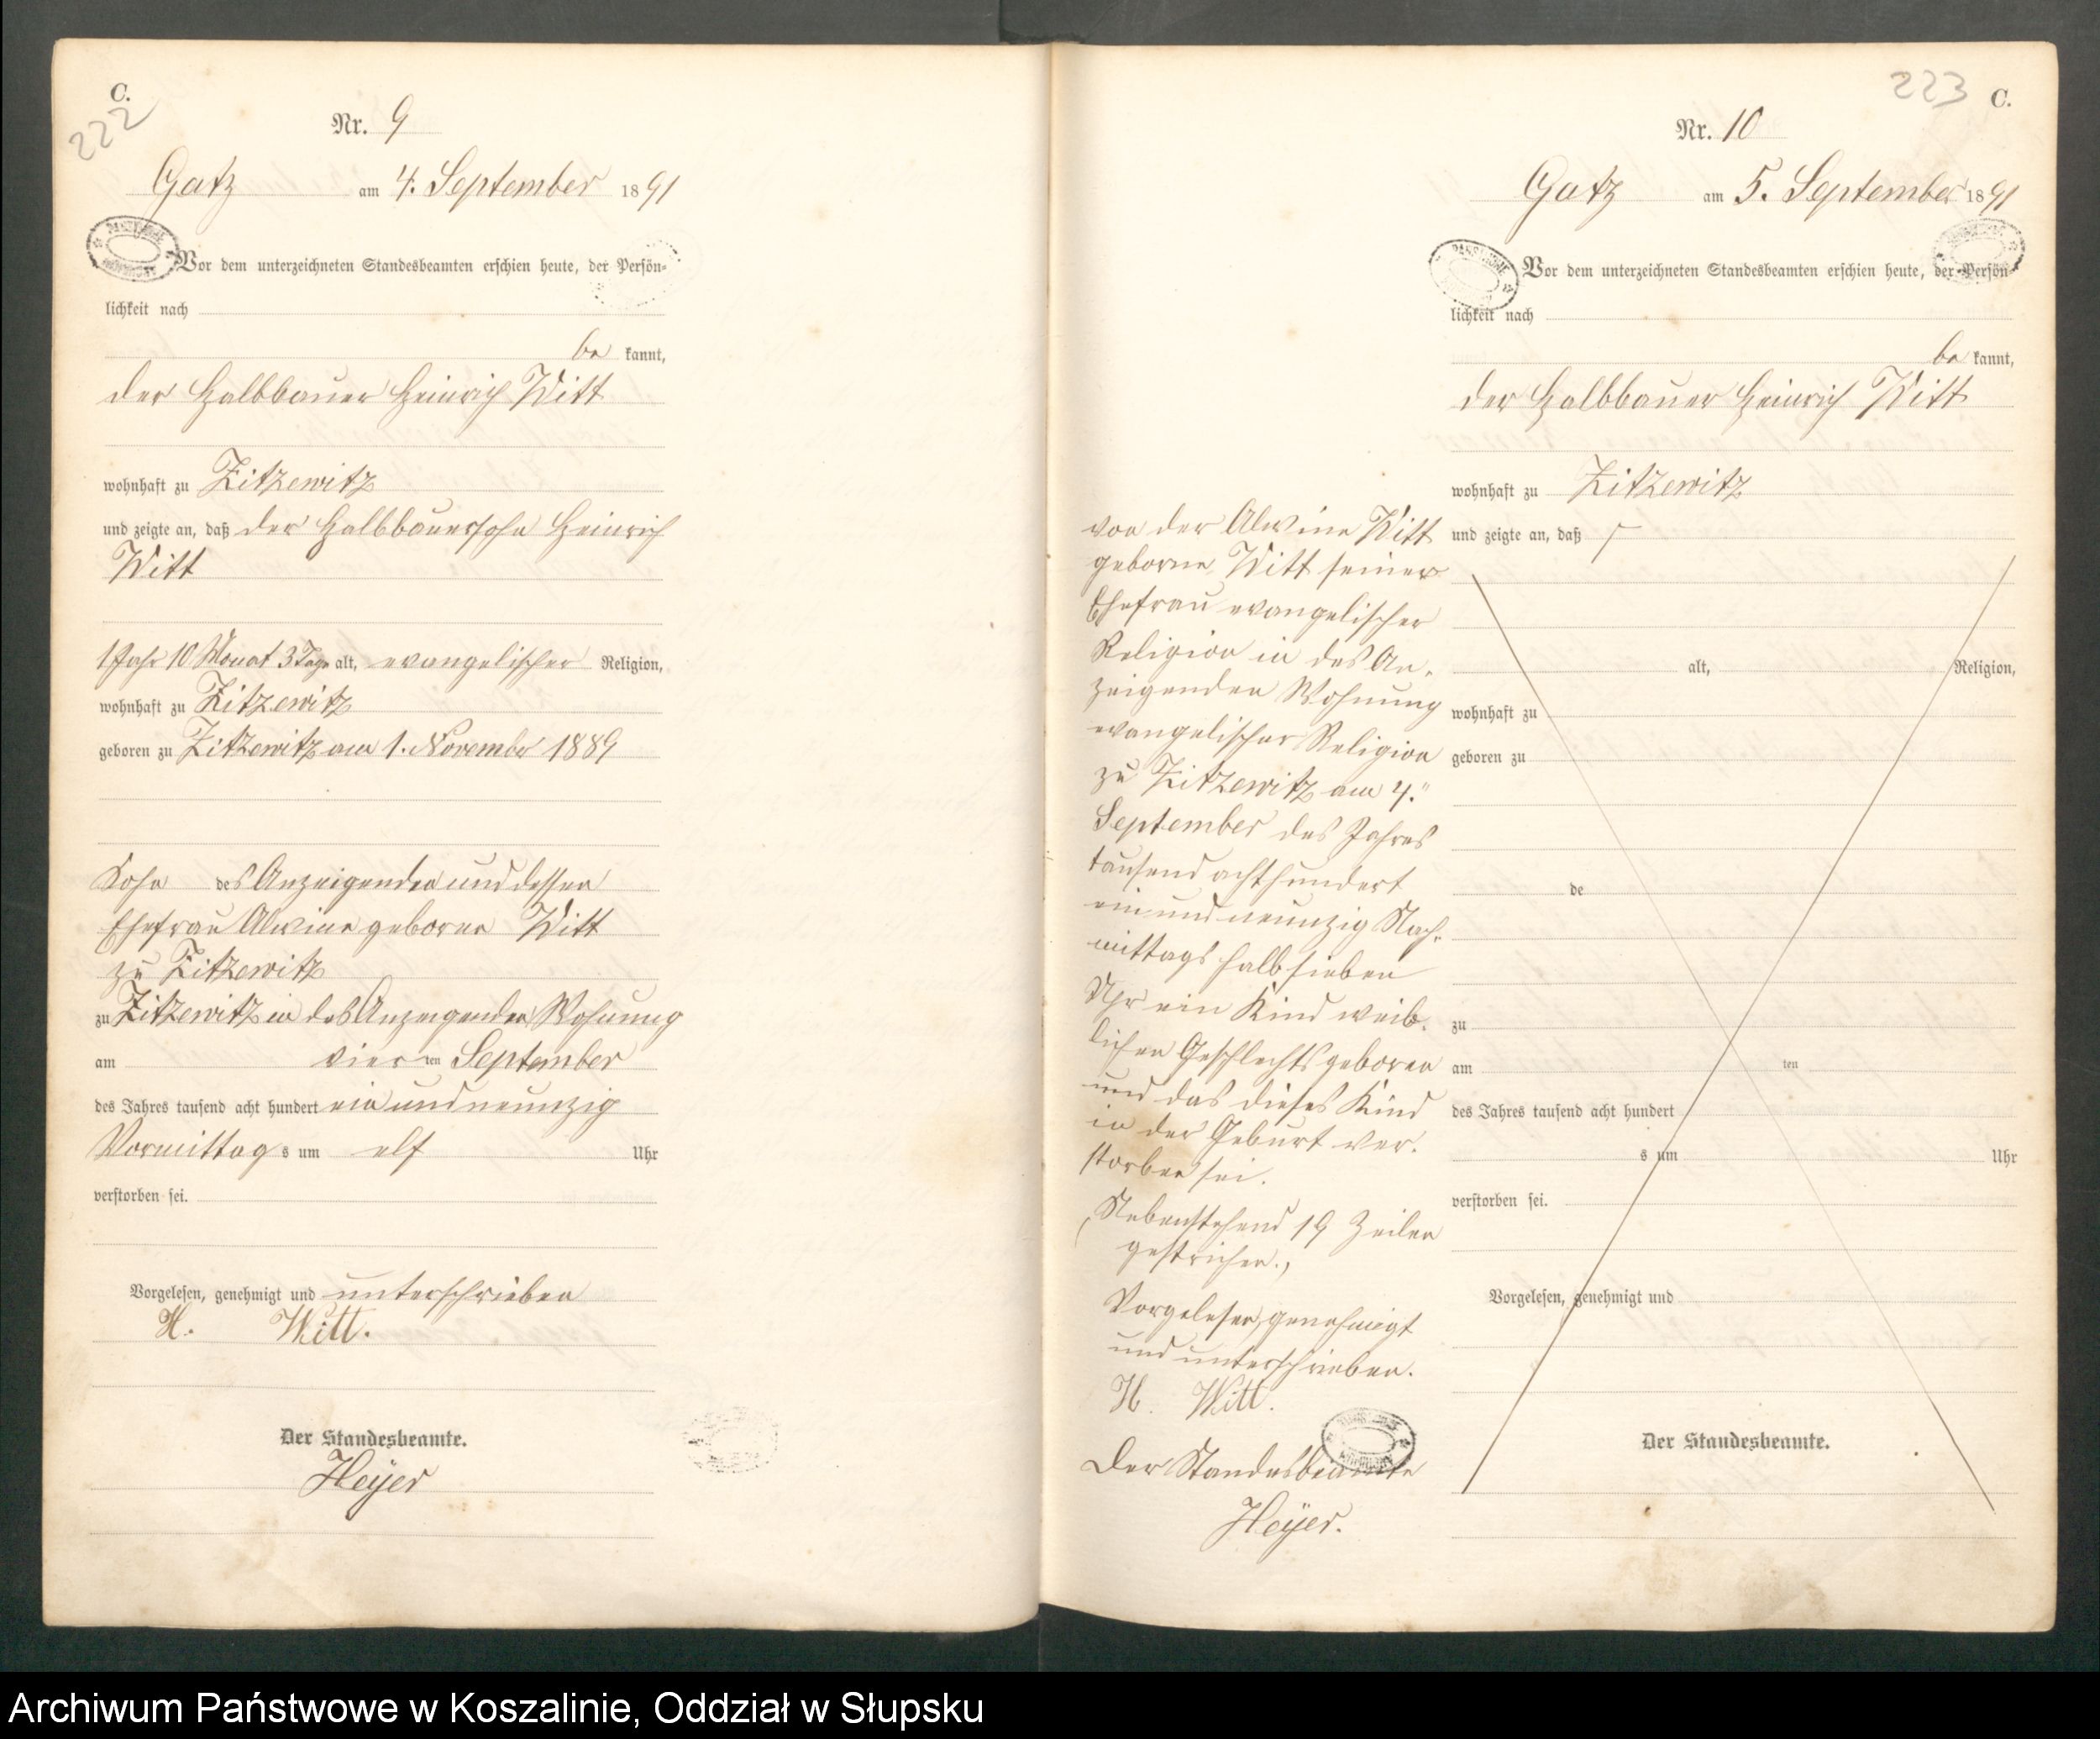 C.
222
Nr. 9
Gatz am 4. September 1891
Vor dem unterzeichneten Standesbeamten erschien heute, der Persön-
lichkeit nach
be kannt,
der Halbbauer Heinrich Witt
wohnhaft zu Zitzewitz
und zeigte an, daß der Halbbauersohn Heinrich
Witt
1 Jahr 10 Monat 3 Tage alt, evangelischer Religion,
wohnhaft zu Zitzewitz
geboren zu Zitzewitz am 1. November 1889
Sohn des Anzeigenden und dessen
Ehefrau Alwine geborne Witt
zu Zitzewitz
zu Zitzewitz in des Anzeigenden Wohnung
am vierten September
des Jahres tausend acht hundert ein und neunzig
Vormittag s um elf Uhr
verstorben sei.
Vorgelesen, genehmigt und unterschrieben
H. Witt.
Der Standesbeamte.
Heyer
223 C.
Nr. 10
Gatz am 5. September 1891
Vor dem unterzeichneten Standesbeamten erschien heute, der Persön-
lichkeit nach
be kannt,
der Halbbauer Heinrich Witt
wohnhaft zu Zitzewitz
und zeigte an, daß
alt, Religion,
wohnhaft zu
geboren zu
de
zu
am ten
des Jahres tausend acht hundert
s um Uhr
verstorben sei.
Vorgelesen, genehmigt und
Der Standesbeamte.
von der Alwine Witt
geborne Witt seiner
Ehefrau evangelischer
Religion in des An-
zeigenden Wohnung
evangelischer Religion
zu Zitzewitz am 4.
September des Jahres
tausend achthundert
ein und neunzig Nach-
mittags halb sieben
Uhr ein Kind weib-
lichen Geschlechts geboren
und das dieses Kind
in der Geburt ver-
storben sei.
Nebenstehend 19 Zeilen
gestrichen.
Vorgelesen, genehmigt
und unterschrieben.
H. Witt.
Der Standesbeamte
Heyer.
Archiwum Państwowe w Koszalinie, Oddział w Słupsku